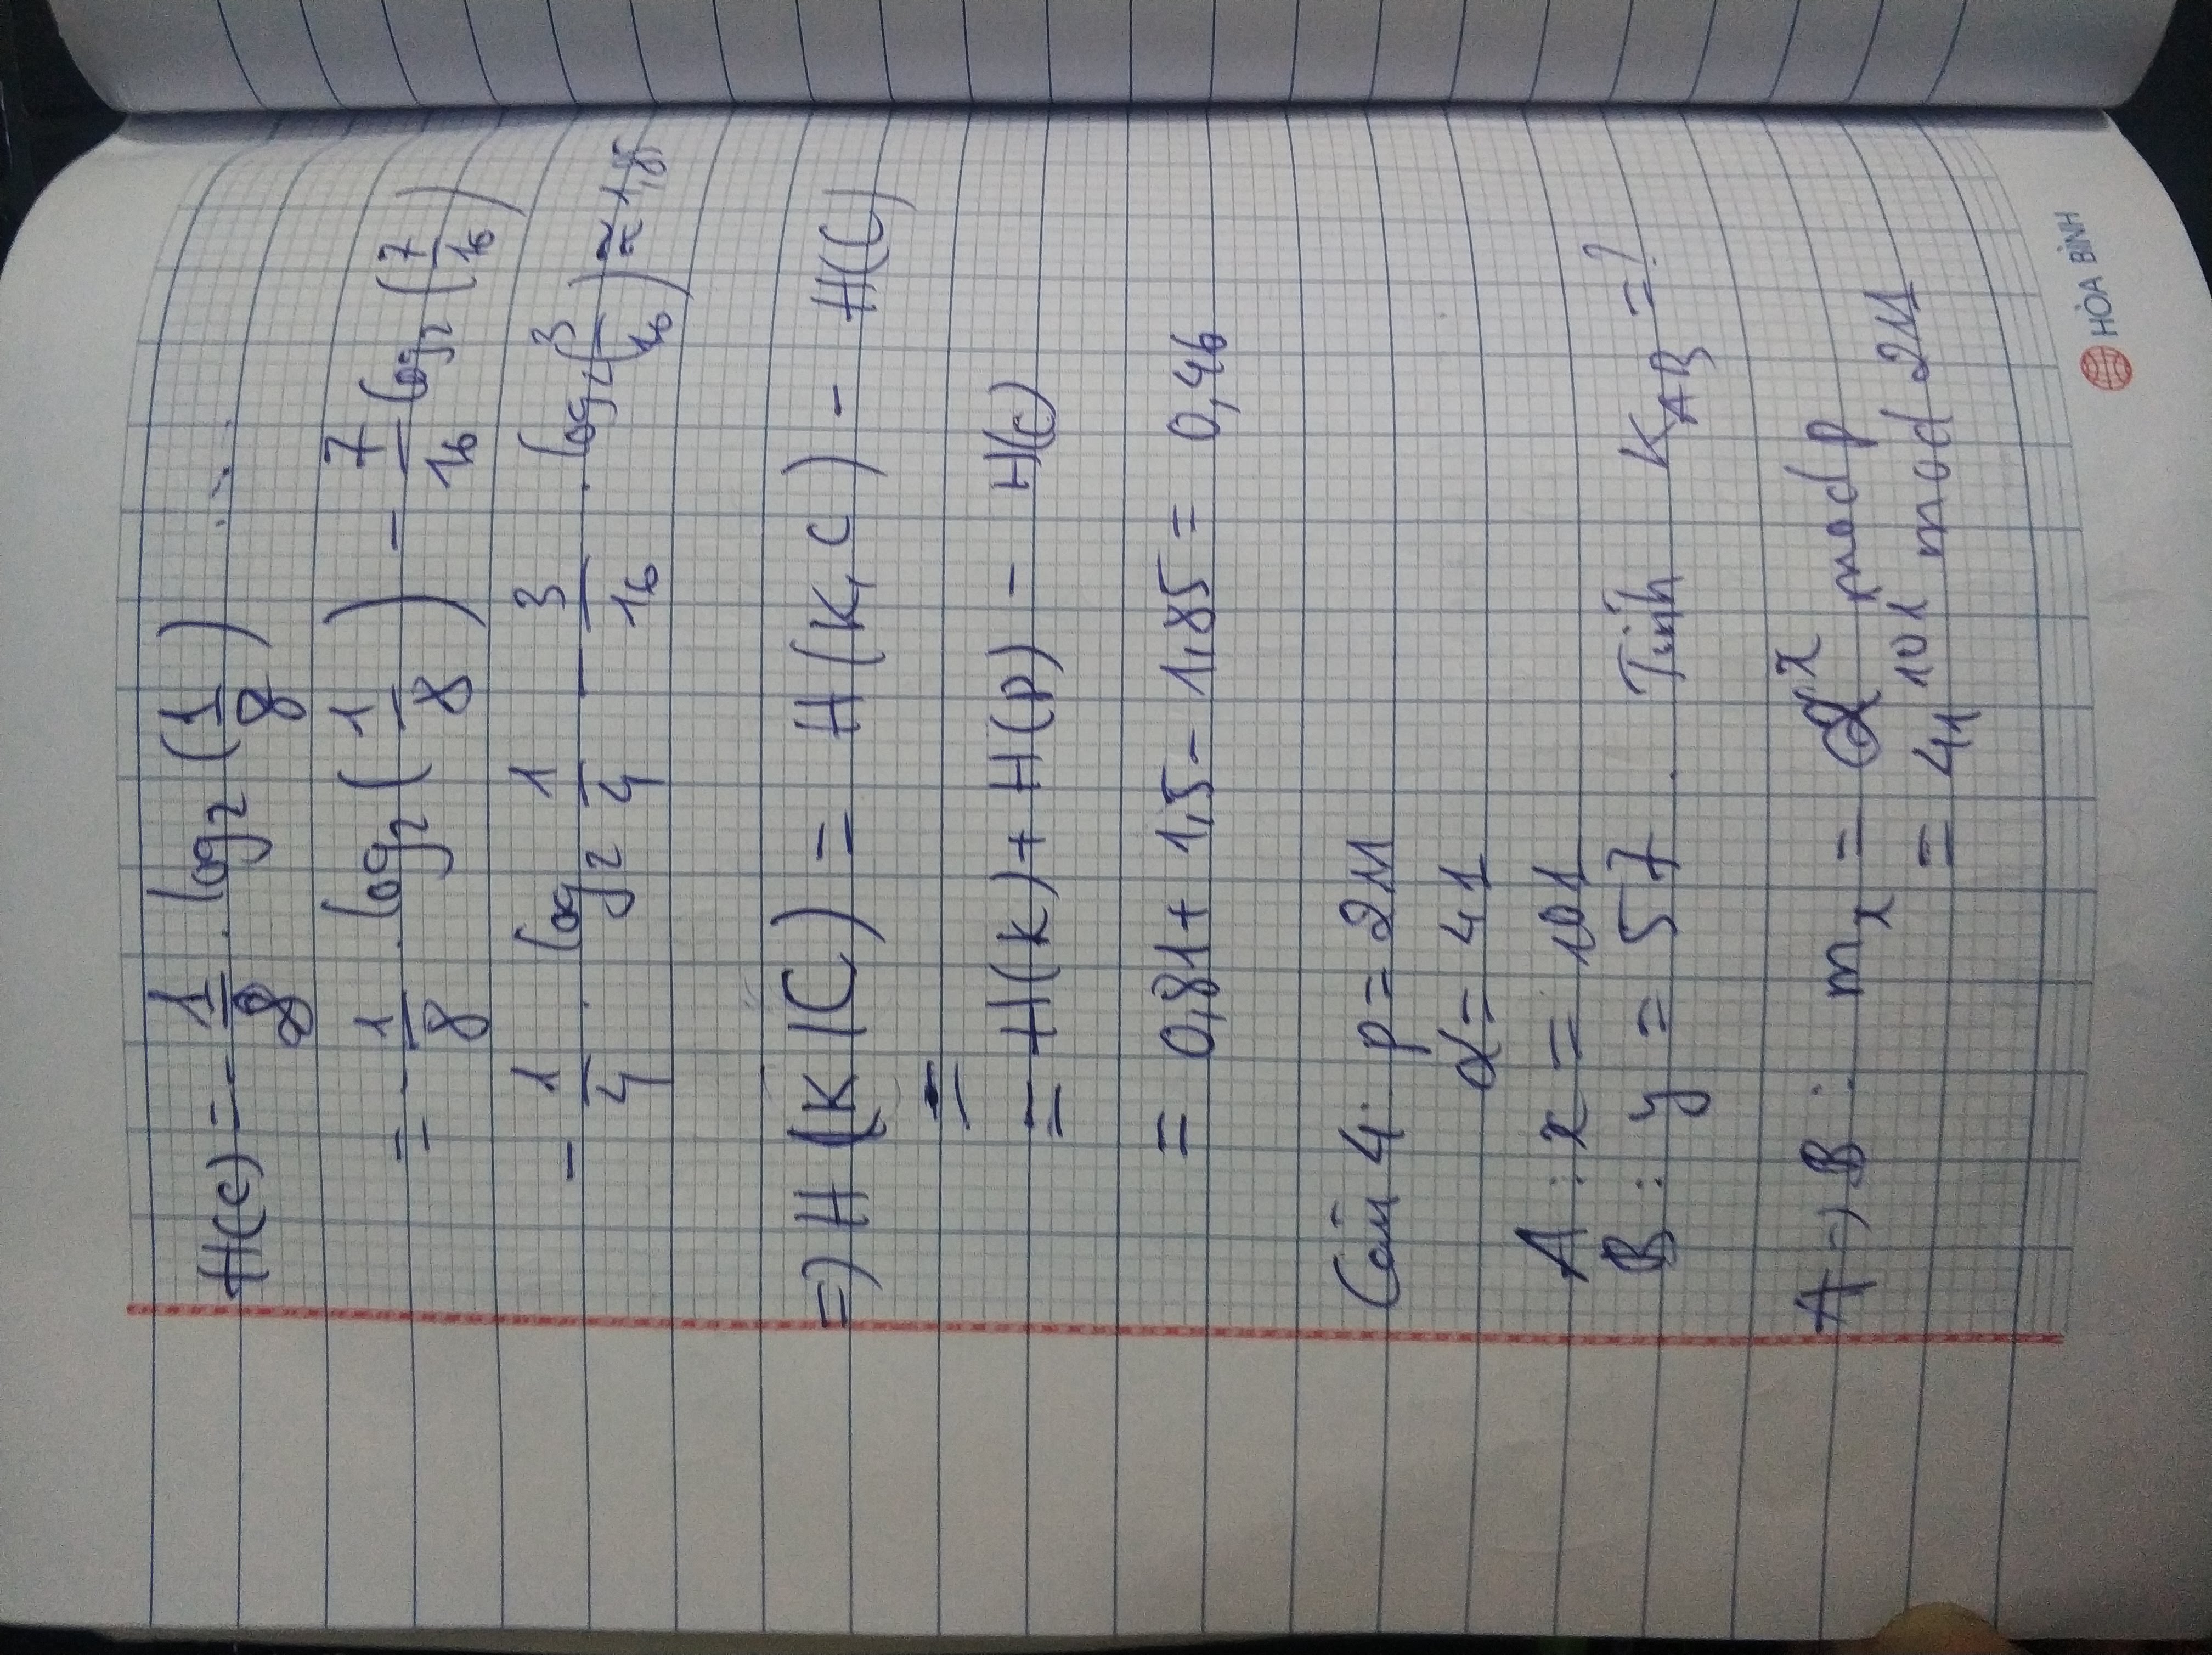 H(C) = - 1/8 . log₂ (1/8) ....
= - 1/8 . log₂ (1/8) - 7/16 log₂ (7/16)
- 1/4 . log₂ 1/4 - 3/16 . log₂ (3/16) ≈ 1,85
=> H (K|C) = H (K, C) - H(C)
=
= H(K) + H(P) - H(C)
= 0,81 + 1,5 - 1,85 = 0,46
Câu 4: p = 211
α = 41
A : x = 101
B : y = 57 . Tính K_AB = ?
A → B : m_x = α^x mod p
= 41^101 mod 211
HÒA BÌNH